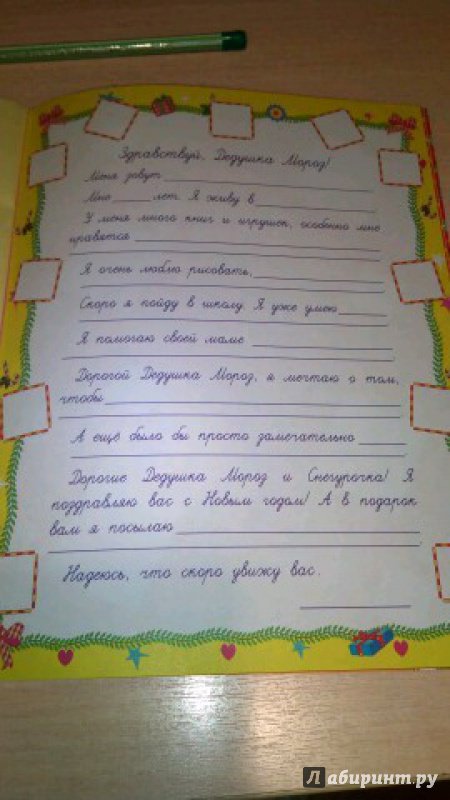 Здравствуй, Дедушка Мороз!
Меня зовут
Мне лет. Я живу в
У меня много книг и игрушек, особенно мне
нравятся
Я очень люблю рисовать,
Скоро я пойду в школу. Я уже умею
Я помогаю своей маме
Дорогой Дедушка Мороз, я мечтаю о том,
чтобы
А ещё было бы просто замечательно
Дорогие Дедушка Мороз и Снегурочка! Я
поздравляю вас с Новым годом! А в подарок
вам я посылаю
Надеюсь, что скоро увижу вас.
Лабиринт.ру